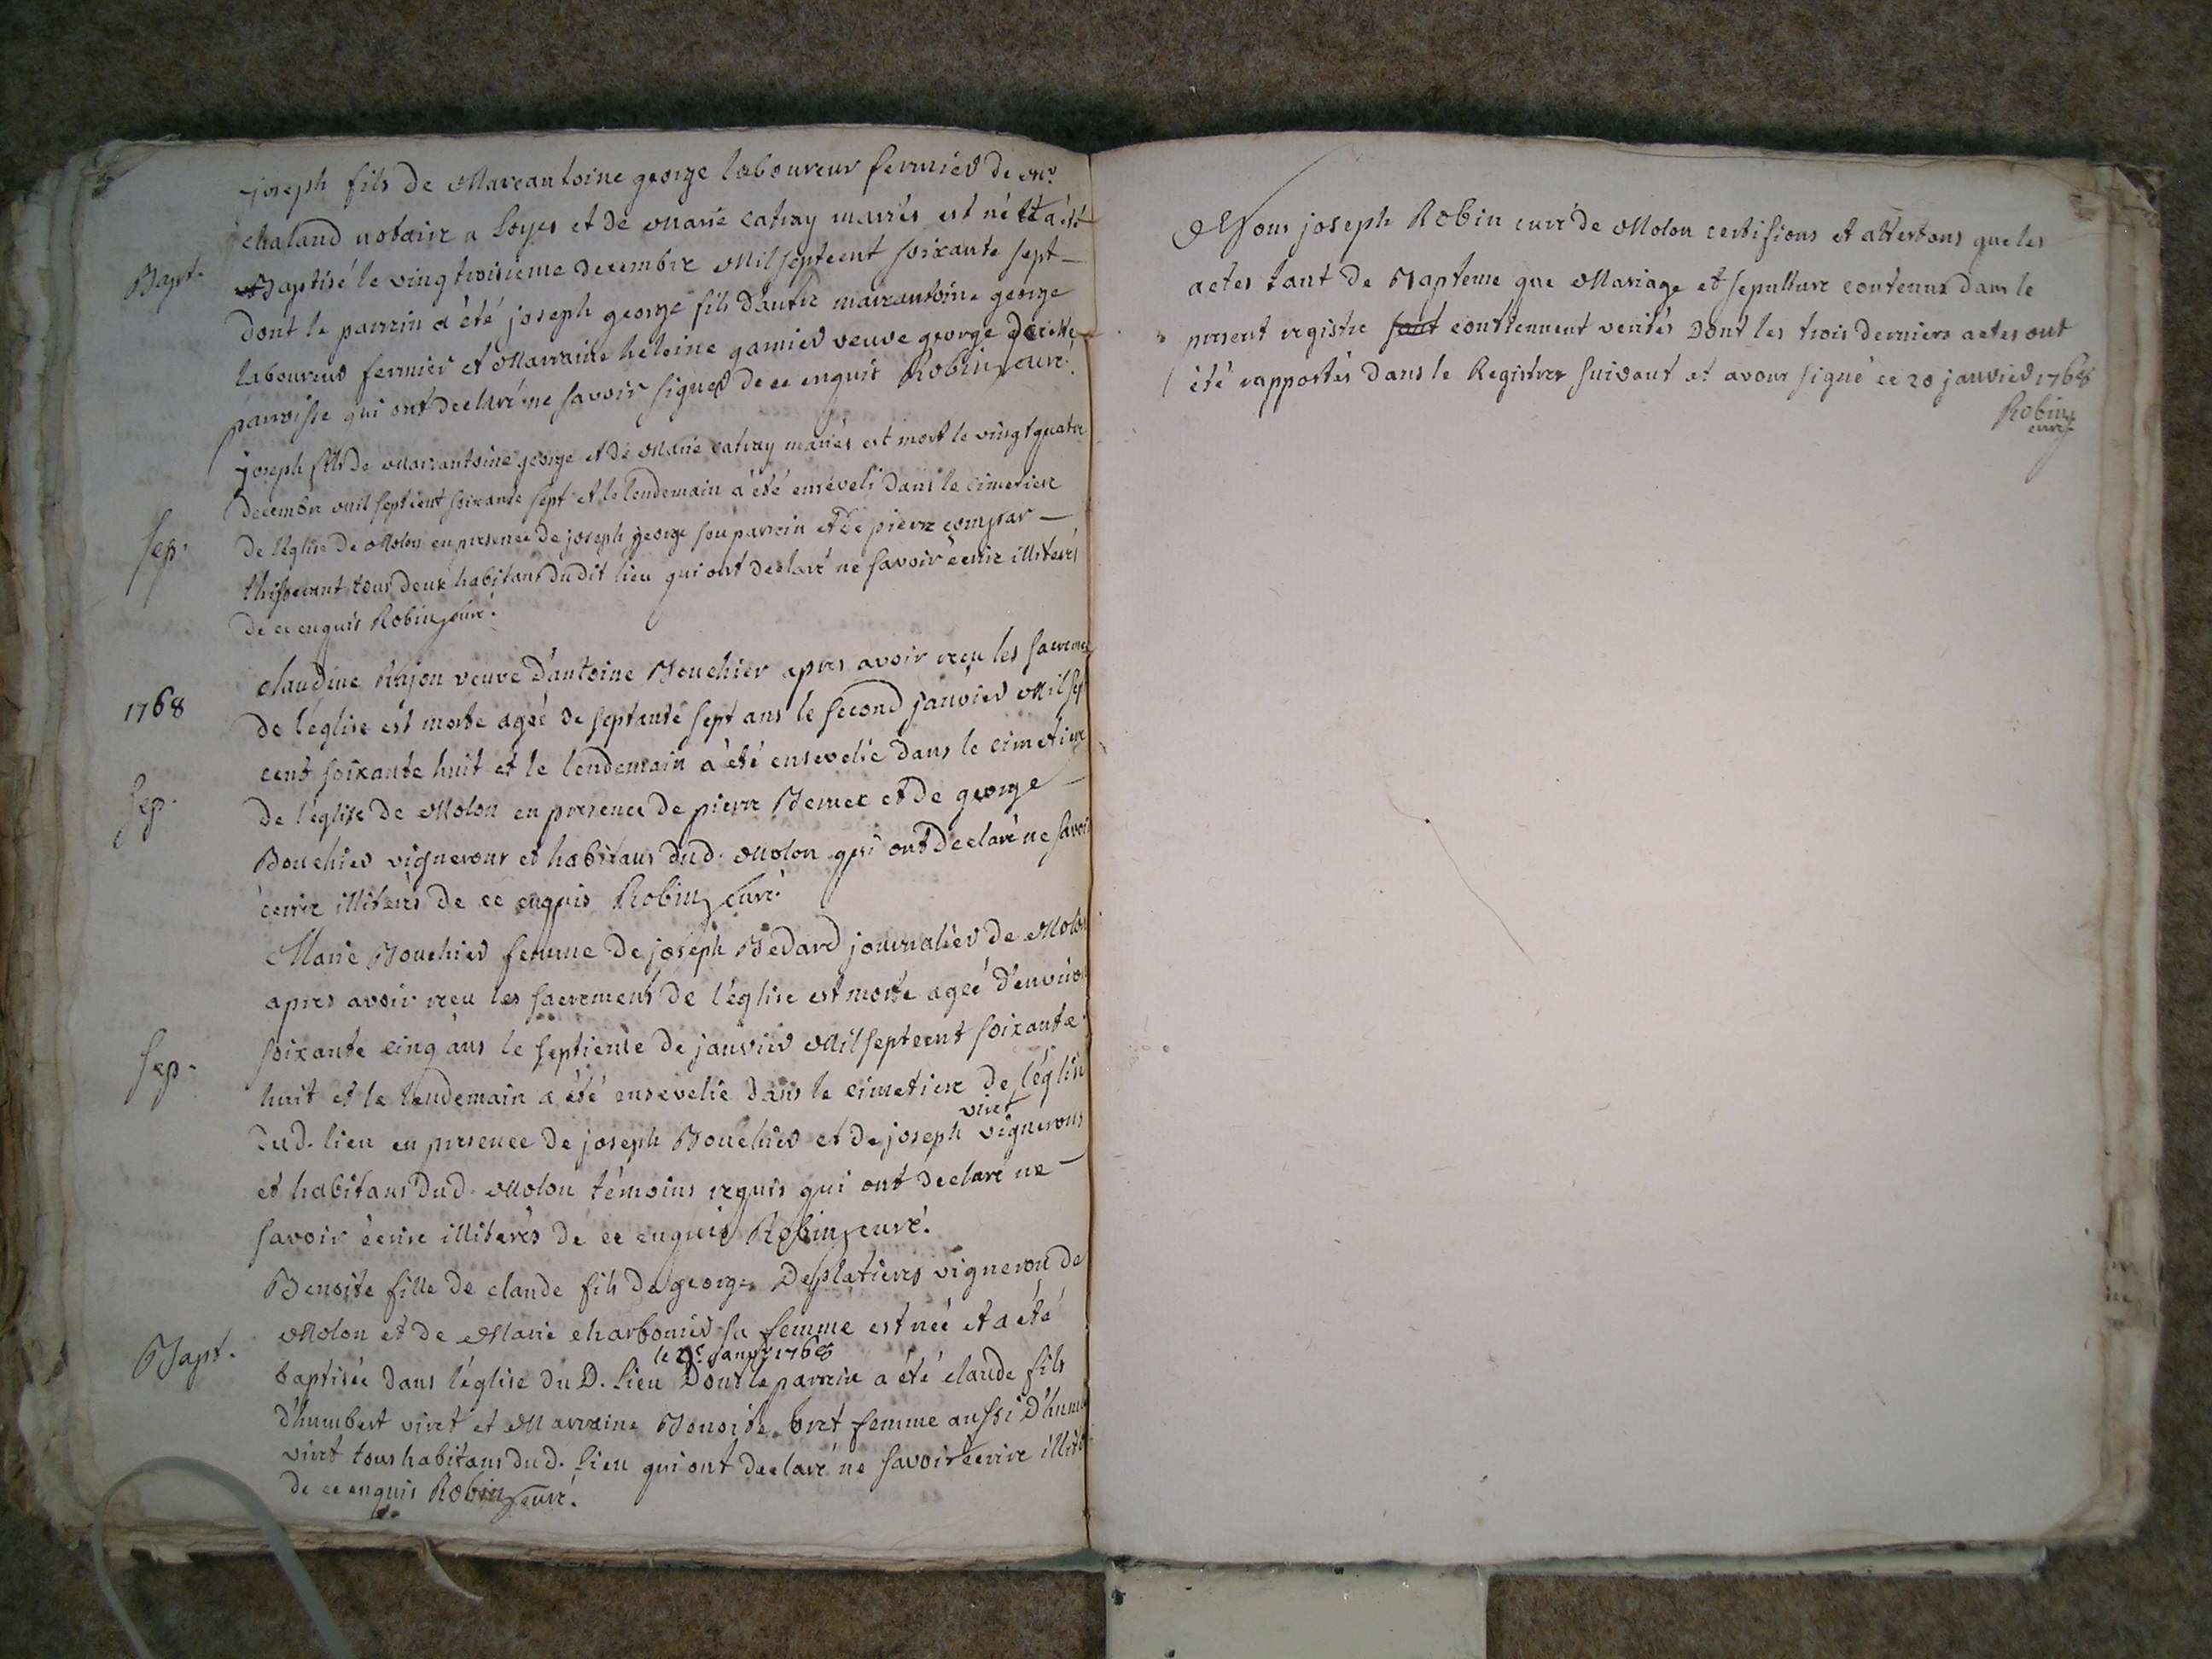 joseph fils de Marcantoine george laboureur fermier de mr.
chaland notaire a Loyes et de marie catray mariés est né et a été
Bapt. Baptisé le vingtroisieme decembre Mil septcent soixante sept
dont le parrein a été joseph george fils d'autre marcantoine george
laboureur fermier et Marraine heleine garnier veuve george de cette
parroisse qui ont declaré ne savoir signer de ce enquis Robin, curé.
joseph fils de marcantoine george et de Marie catray mariés est mort le vingt quatre
decembre mil septcent soixante sept et le lendemain a été enséveli dans le cimetiere
Sep. de l'église de Molon en presence de joseph george son parrein et de pierre compar
thisserent tous deux habitans dudit lieu qui ont declaré ne savoir écrire illiterés
de ce enquis Robin, curé.
claudine Rajon veuve d'antoine Bouchier apres avoir reçu les sacremen
1768 de l'église est morte agée de septante sept ans le second janvier Mil sept
cent soixante huit et le lendemain a été ensevelie dans le cimetiere
Sep. de l'église de Molon en presence de pierre Bernex et de george
Bouchier vignerons et habitans dud. Molon qui ont declaré ne savoir
écrire illiterés de ce enquis Robin, curé.
Marie Bouchier femme de joseph Bedard journalier de Molon
apres avoir reçu les sacremens de l'église est morte agée d'environ
Sep. soixante cinq ans le septieme de janvier Mil septcent soixante
huit et le lendemain a été ensevelie dans le cimetiere de l'église
viret
dud. lieu en presence de joseph Bouchier et de joseph vignerons
et habitans dud. Molon témoins requis qui ont declaré ne
savoir écrire illiterés de ce enquis Robin, curé.
Benoite fille de claude fils de george Desplatieres vigneron de
Molon et de Marie charbonier sa femme est née et a été
le 9e janvr 1768
Bapt. baptisée dans l'église du D. lieu Dont le parrein a été claude fils
d'humbert viret et Marraine Benoite bret femme aussi d'humb
viret tous habitans dud. lieu qui ont declaré ne savoir écrire illite
de ce enquis Robin, curé.
Nous joseph Robin curé de Molon certifions et attestons que les
actes tant de Bapteme que Mariage et sepulture contenus dans le
present registre sont contiennent verités Dont les trois derniers actes ont
été rapportés dans le Registre suivant et avons signé ce 20 janvier 1768
Robin,
curé